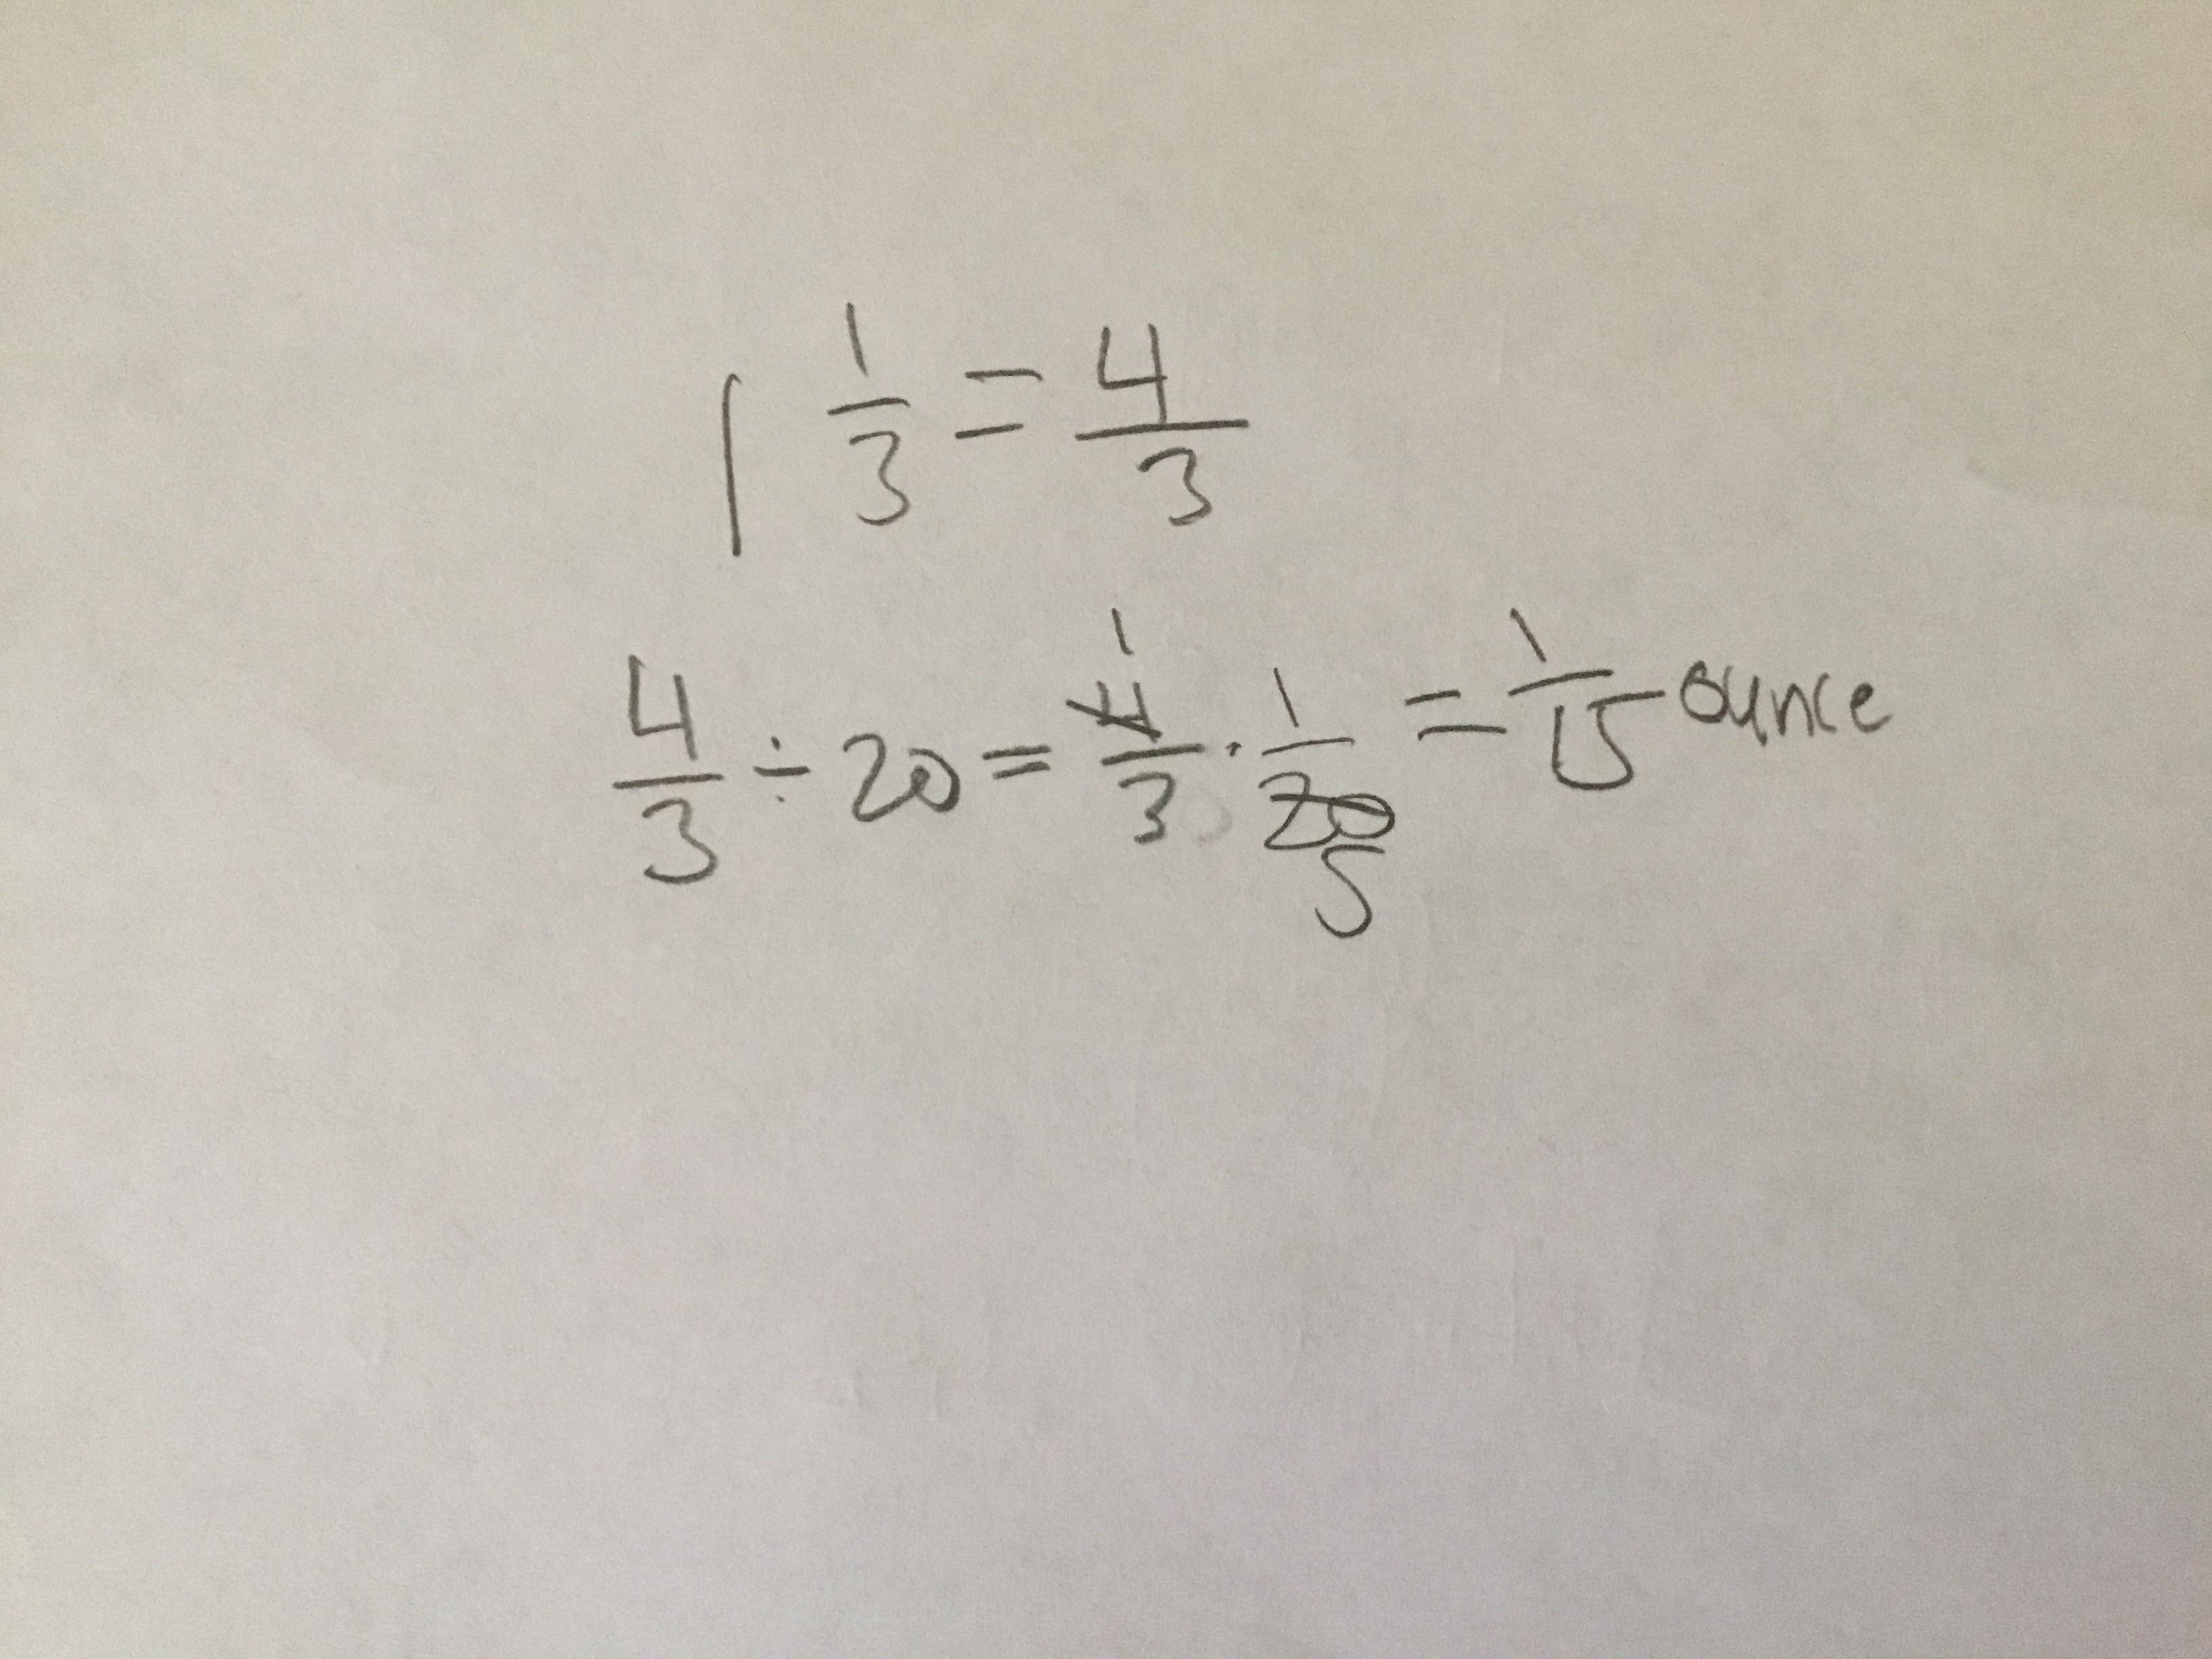 1 1/3 = 4/3
4/3 ÷ 20 = 4/3 1 · 1/20 5 = 1/15 ounce